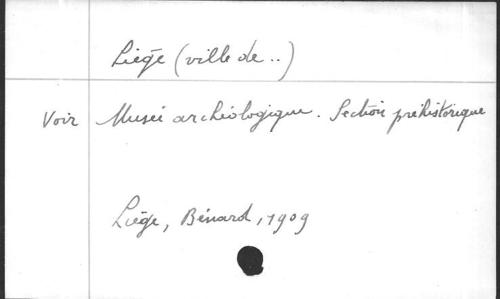 Liège (ville de..)
Voir Musée archéologique. Section préhistorique
Liège, Bénard, 1909